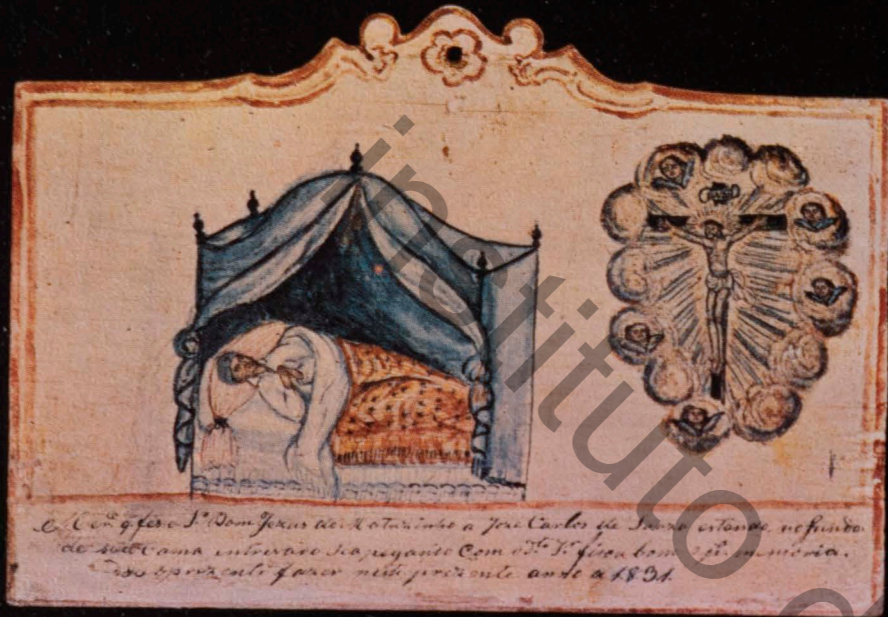 q fes o Sr Bom Jezus de Matuzinho a Joze Carlos de Souza estando no fundo
de sua Cama entrevado Se apegando Com o dto Sr ficou bom e pr. memoria.
o prezente fazer neste prezente anno a 1831
instituto